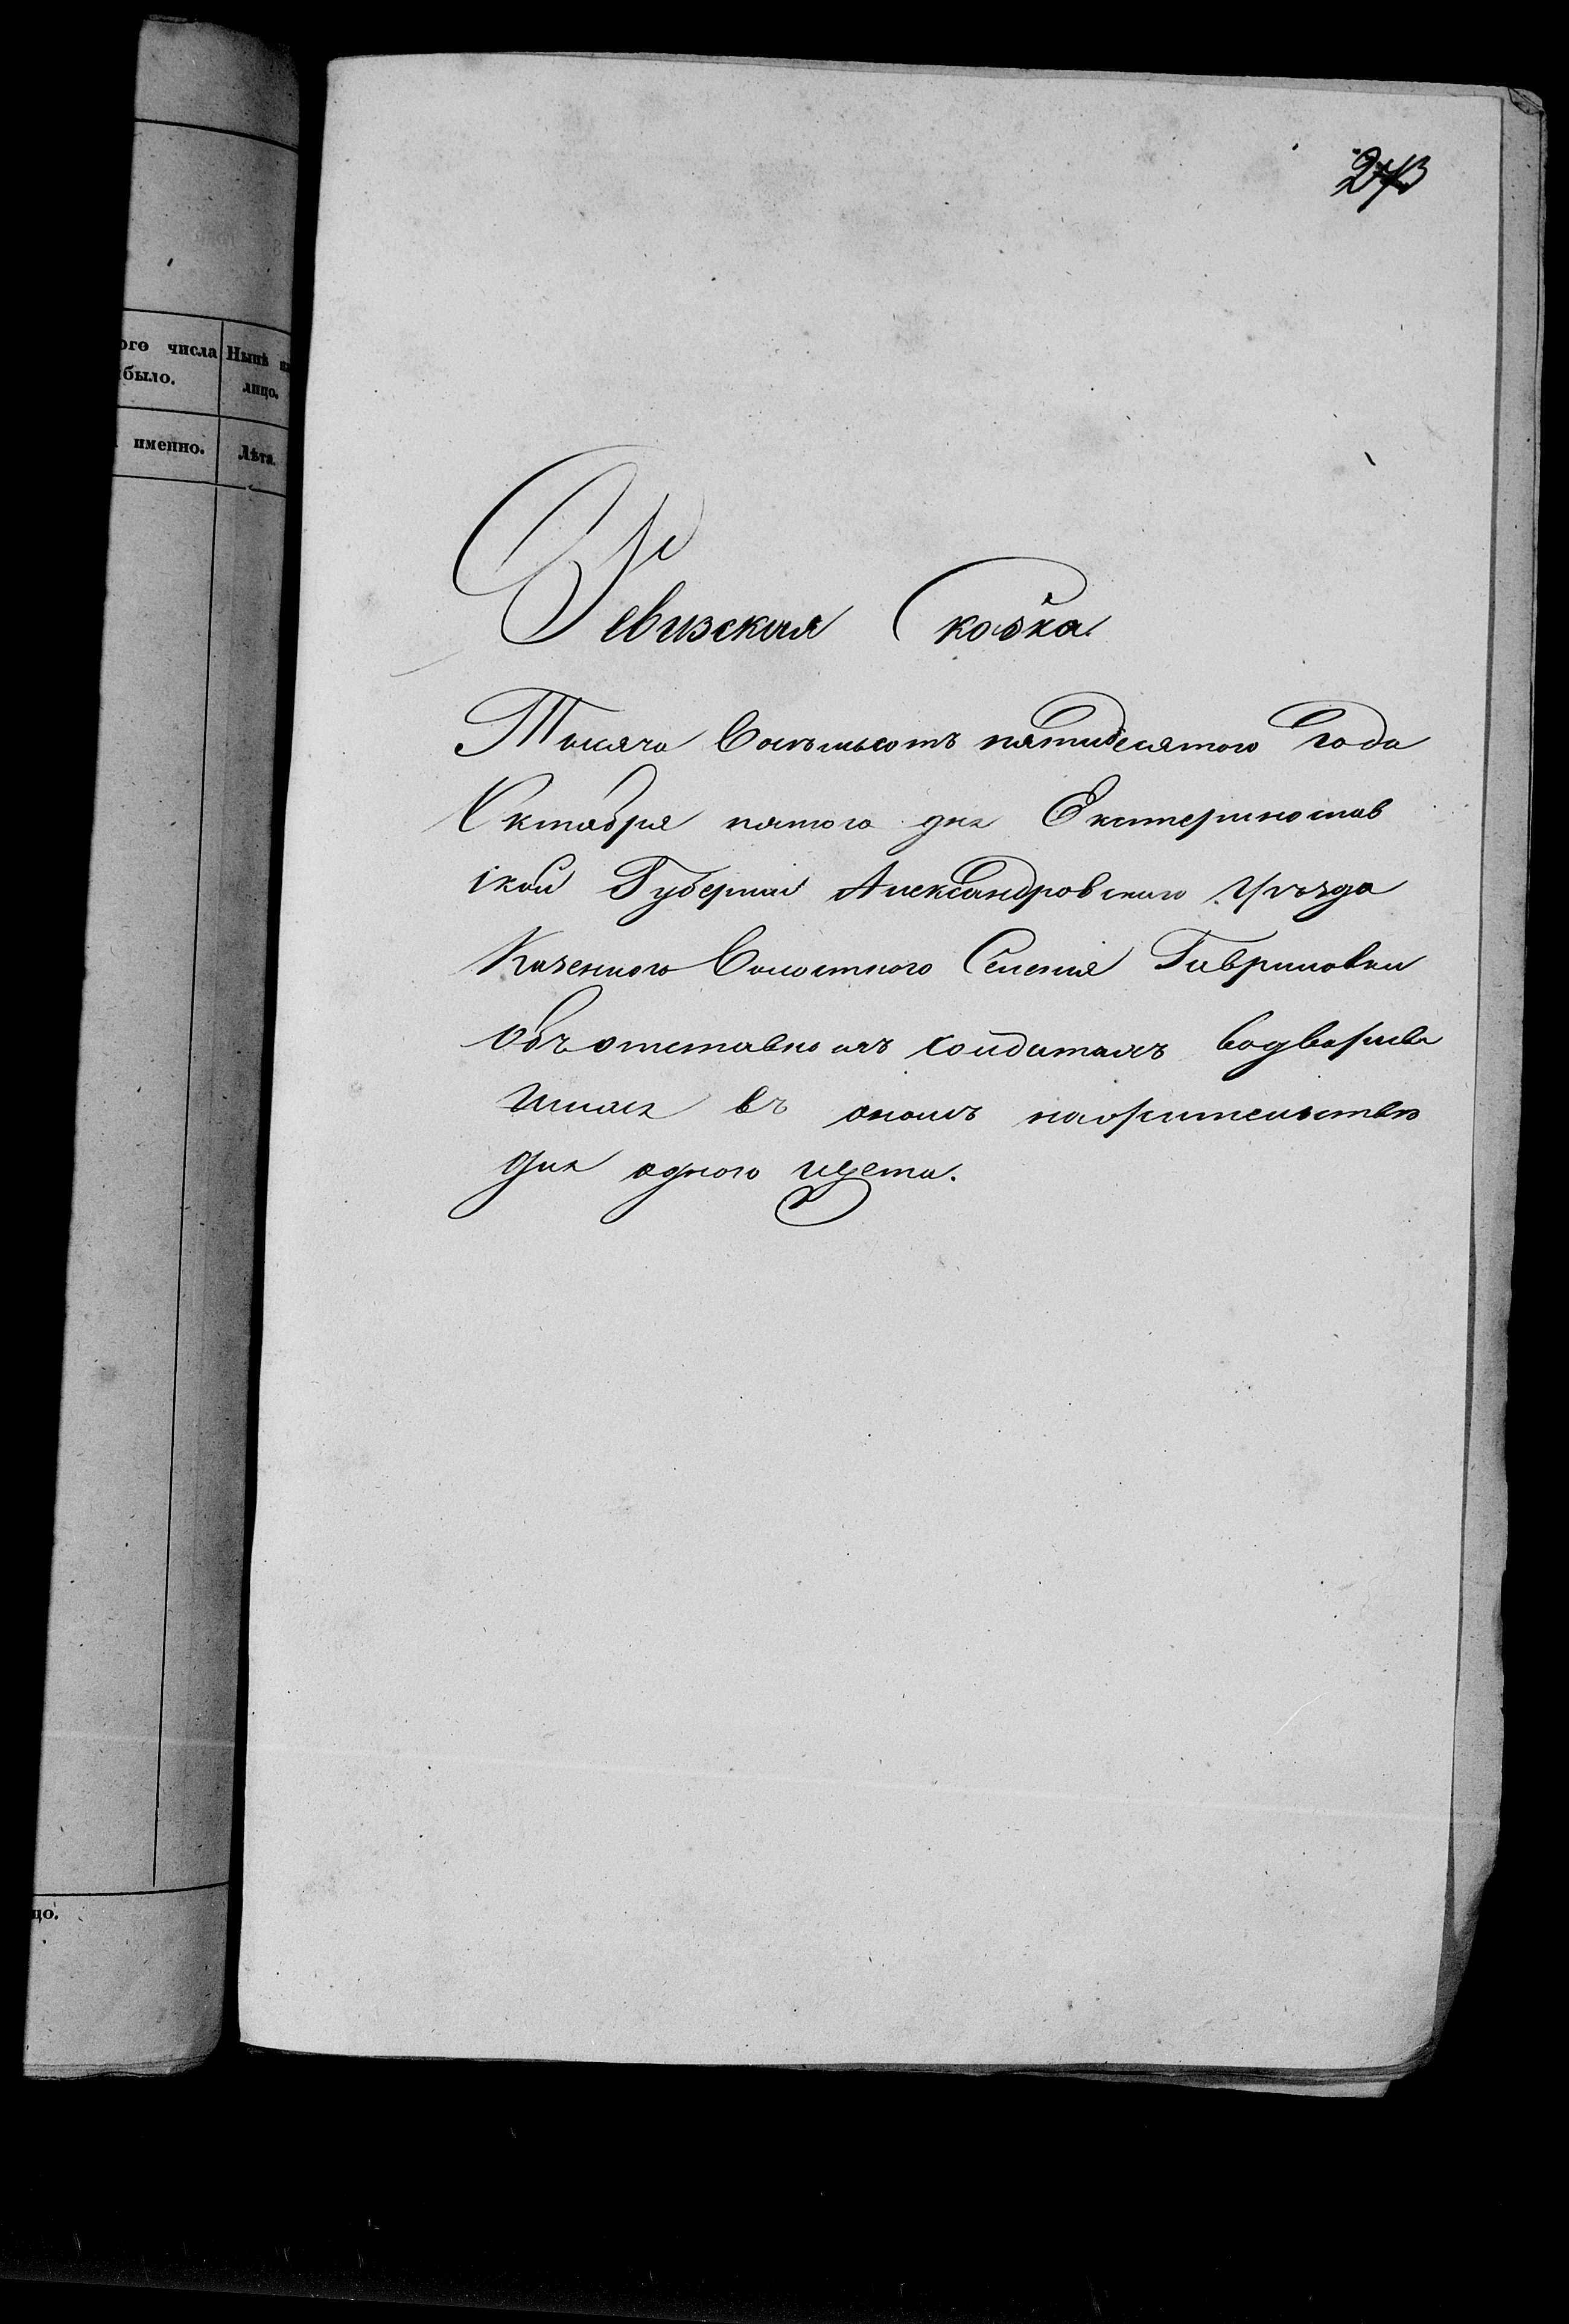 273
ого числа
было.
Нынѣ на
лицо.
именно.
Лѣта.
Ревизская Сказка
Тысяча Восъмьсотъ пятидесятого Года
Октября пятого дня Екатеринослав
ской Губерніи Александровского Уѣзда
Казенного Волостного Селенія Гавриловки
Объ отставныхъ солдатахъ водворив
шихся въ ономъ
для одного щета.
цо.